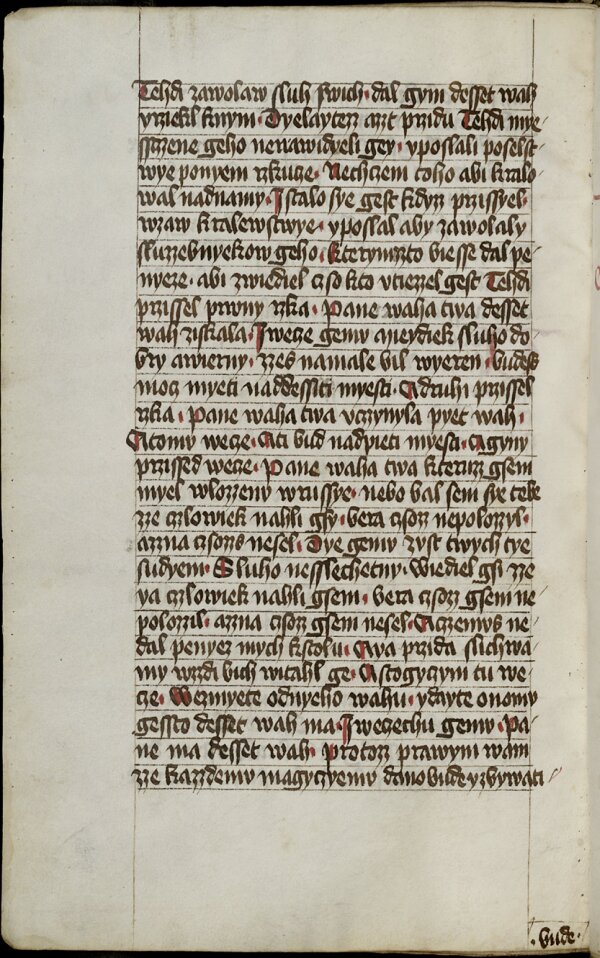 Tehdi zawolaw sluh swich · dal gym desset wah
vrziekl knym · Dyelayterz azt przidu Tehdi mye
sstzene geho nenawidyeli gey · vposlali poselst
wye ponyem rzkucze · Nechczem toho abi kralo
wal nadnamy · I stalo sye gest kdyz przissyel ·
wzaw kralewstwye · vposlal aby zawolaly
sluzzebnyekow geho · kterymzto biesse dal pe
nyeze · abi zwiediel czso kto vtiezzel gest Tehdi
przissel prwny rzka · Pane waha twa desset
wah ziskala · I wecze gemv ayeydiek sluho do
bry awierny · zzes namale bil wyeren · budess
mocz myeti naddessiti myesti · A druhi przissel
rzka · Pane waha twa vczynyla pyet wah ·
Atomv wecze · Ati bud nadpieti myesti · A gyny
przissed wecze · Pane waha twa kteruz gsem
myel wlozzenv wrussye · nebo bal sem sye tebe
ze czlowiek nahli gsy · bera czsoz nepolozyl ·
azzna czsozs nesel · Dye gemv zvst twych tye
sudyem · Sluho nesslechetny · wiediel gsi zze
ya czlowiek nahli gsem · bera czsoz gsem ne
polozil · azzna czsoz gsem nesel · Aczemvs ne
dal penyez mych kstolu · Aya przida slichwa
my wzdi bich witahl ge · Astogyczym tu we
cze · Wezmyete odnyeho wahu · ydayte onomv
gessto desset wah ma · I weczechu gemv · Pa
ne ma desset wah · protoz prawym wam
zze kazzdemv magyczyemv dano bude yzbywati
· bude ·